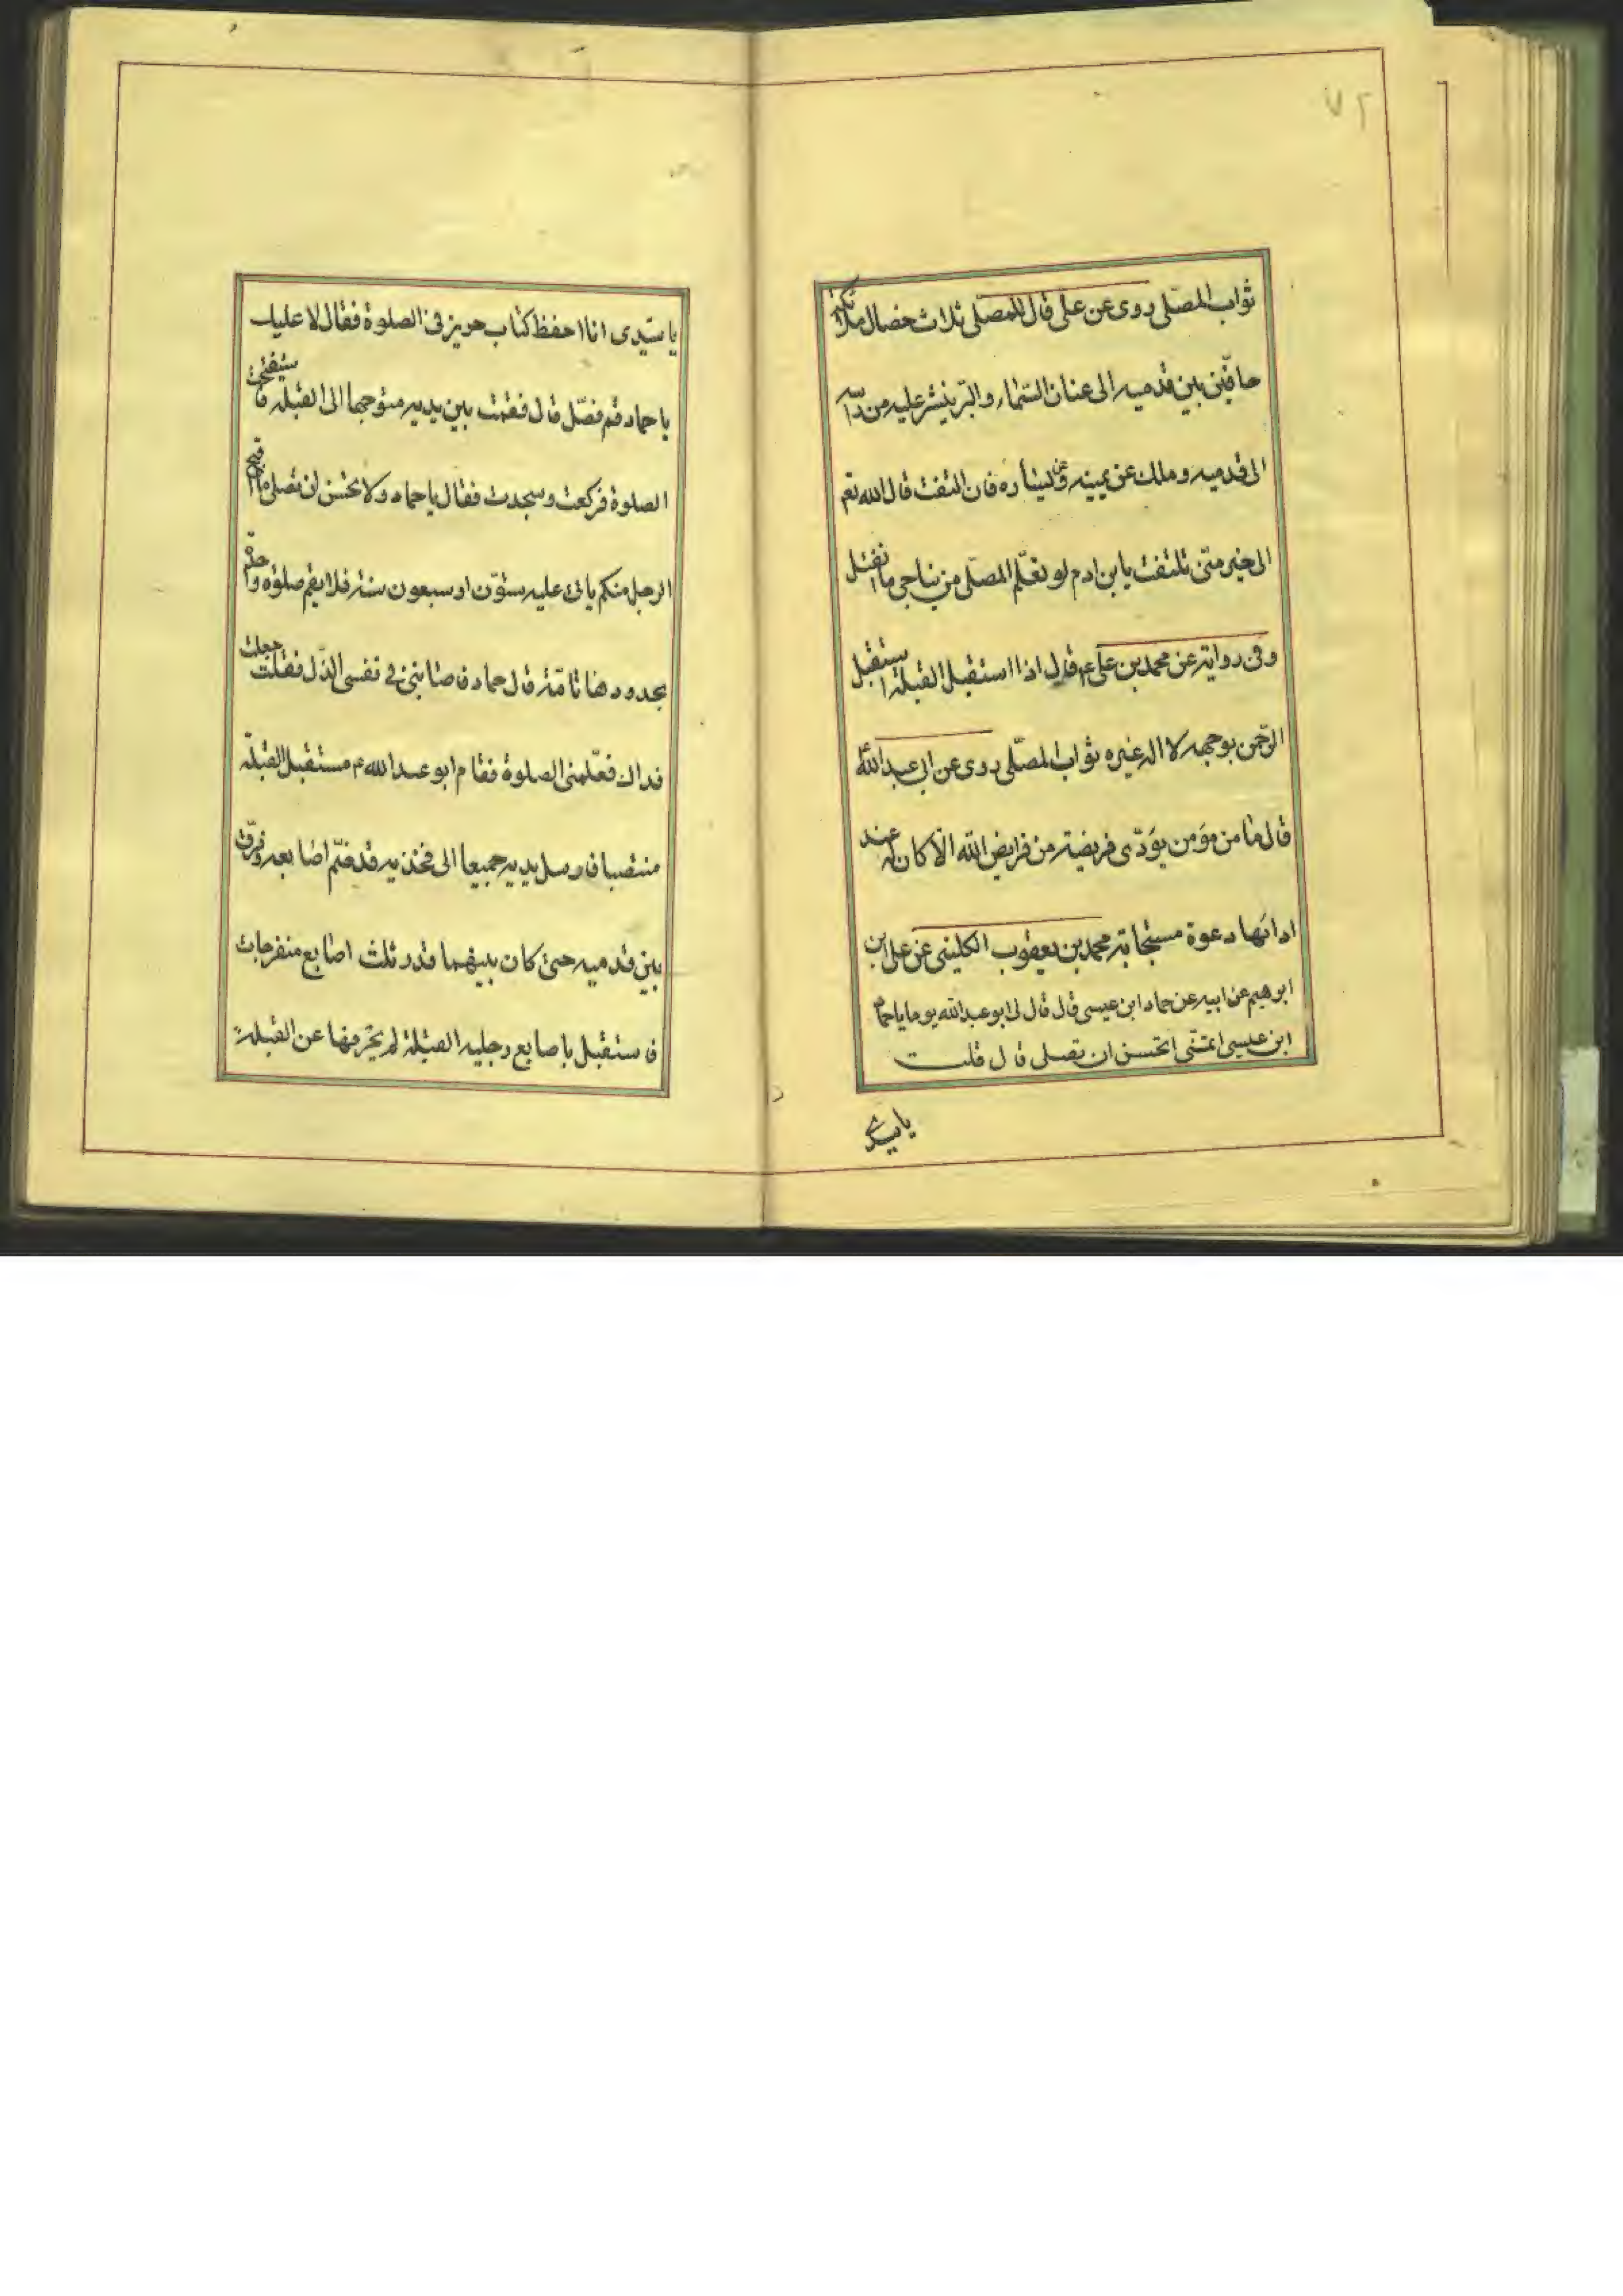 ٧٢
ثواب المصلّى روى عن علّى قال للمصلّى ثلاث خصال ملائكة
حافّين بين قدميه الى عنان السّماء والبّر ينشر عليه من راسه
الى قدميه وملك عن يمينه وعن يساره فان التفت قال الله تعم
الى خير منّى تلتفت يا بن ادم لو تعلّم المصلّى من يناجى ما انفتل
وفى رواية عن محمد بن على ع قال اذا استقبل القبلة استقبل
الرّحمن بوجهه لا اله غيره ثواب المصلّى روى عن ابى عبد الله
قال ما من مؤمن يؤدّى فريضة من فرايض الله الّا كان له عند
ادائها دعوة مستجابة محمد بن يعقوب الكلينى عن على ابن
ابرهيم عن ابيه عن حماد ابن عيسى قال قال لى ابو عبد الله يوما يا حماد
ابن عيسى اتحسن ان تصلى قال قلت
يا سيدى
يا سيّدى انا احفظ كتاب حريز فى الصلوة فقال لا عليك
يا حماد قم فصّل قال فقمت بين يديه متوجها الى القبلة فاستفتحت
الصلوة فركعت وسجدت فقال يا حماد ولا تحسن ان تصلى ما اقبح
الرجل منكم ياتى عليه ستّون او سبعون سنة فلا يقيم صلوة واحدة
بحدودها تامّة قال حماد فاصابنى فى نفسى الذّل فقلت جعلت
فداك فعّلمنى الصلوة فقام ابو عبد الله ع مستقبل القبلة
منتصبا فارسل يديه جميعا الى فخذيه قد ضّم اصابعه وفرّق
بين قدميه حتى كان بينهما قدر ثلث اصابع منفرجات
فاستقبل باصابع رجليه القبلة لم يحرفها عن القبلة